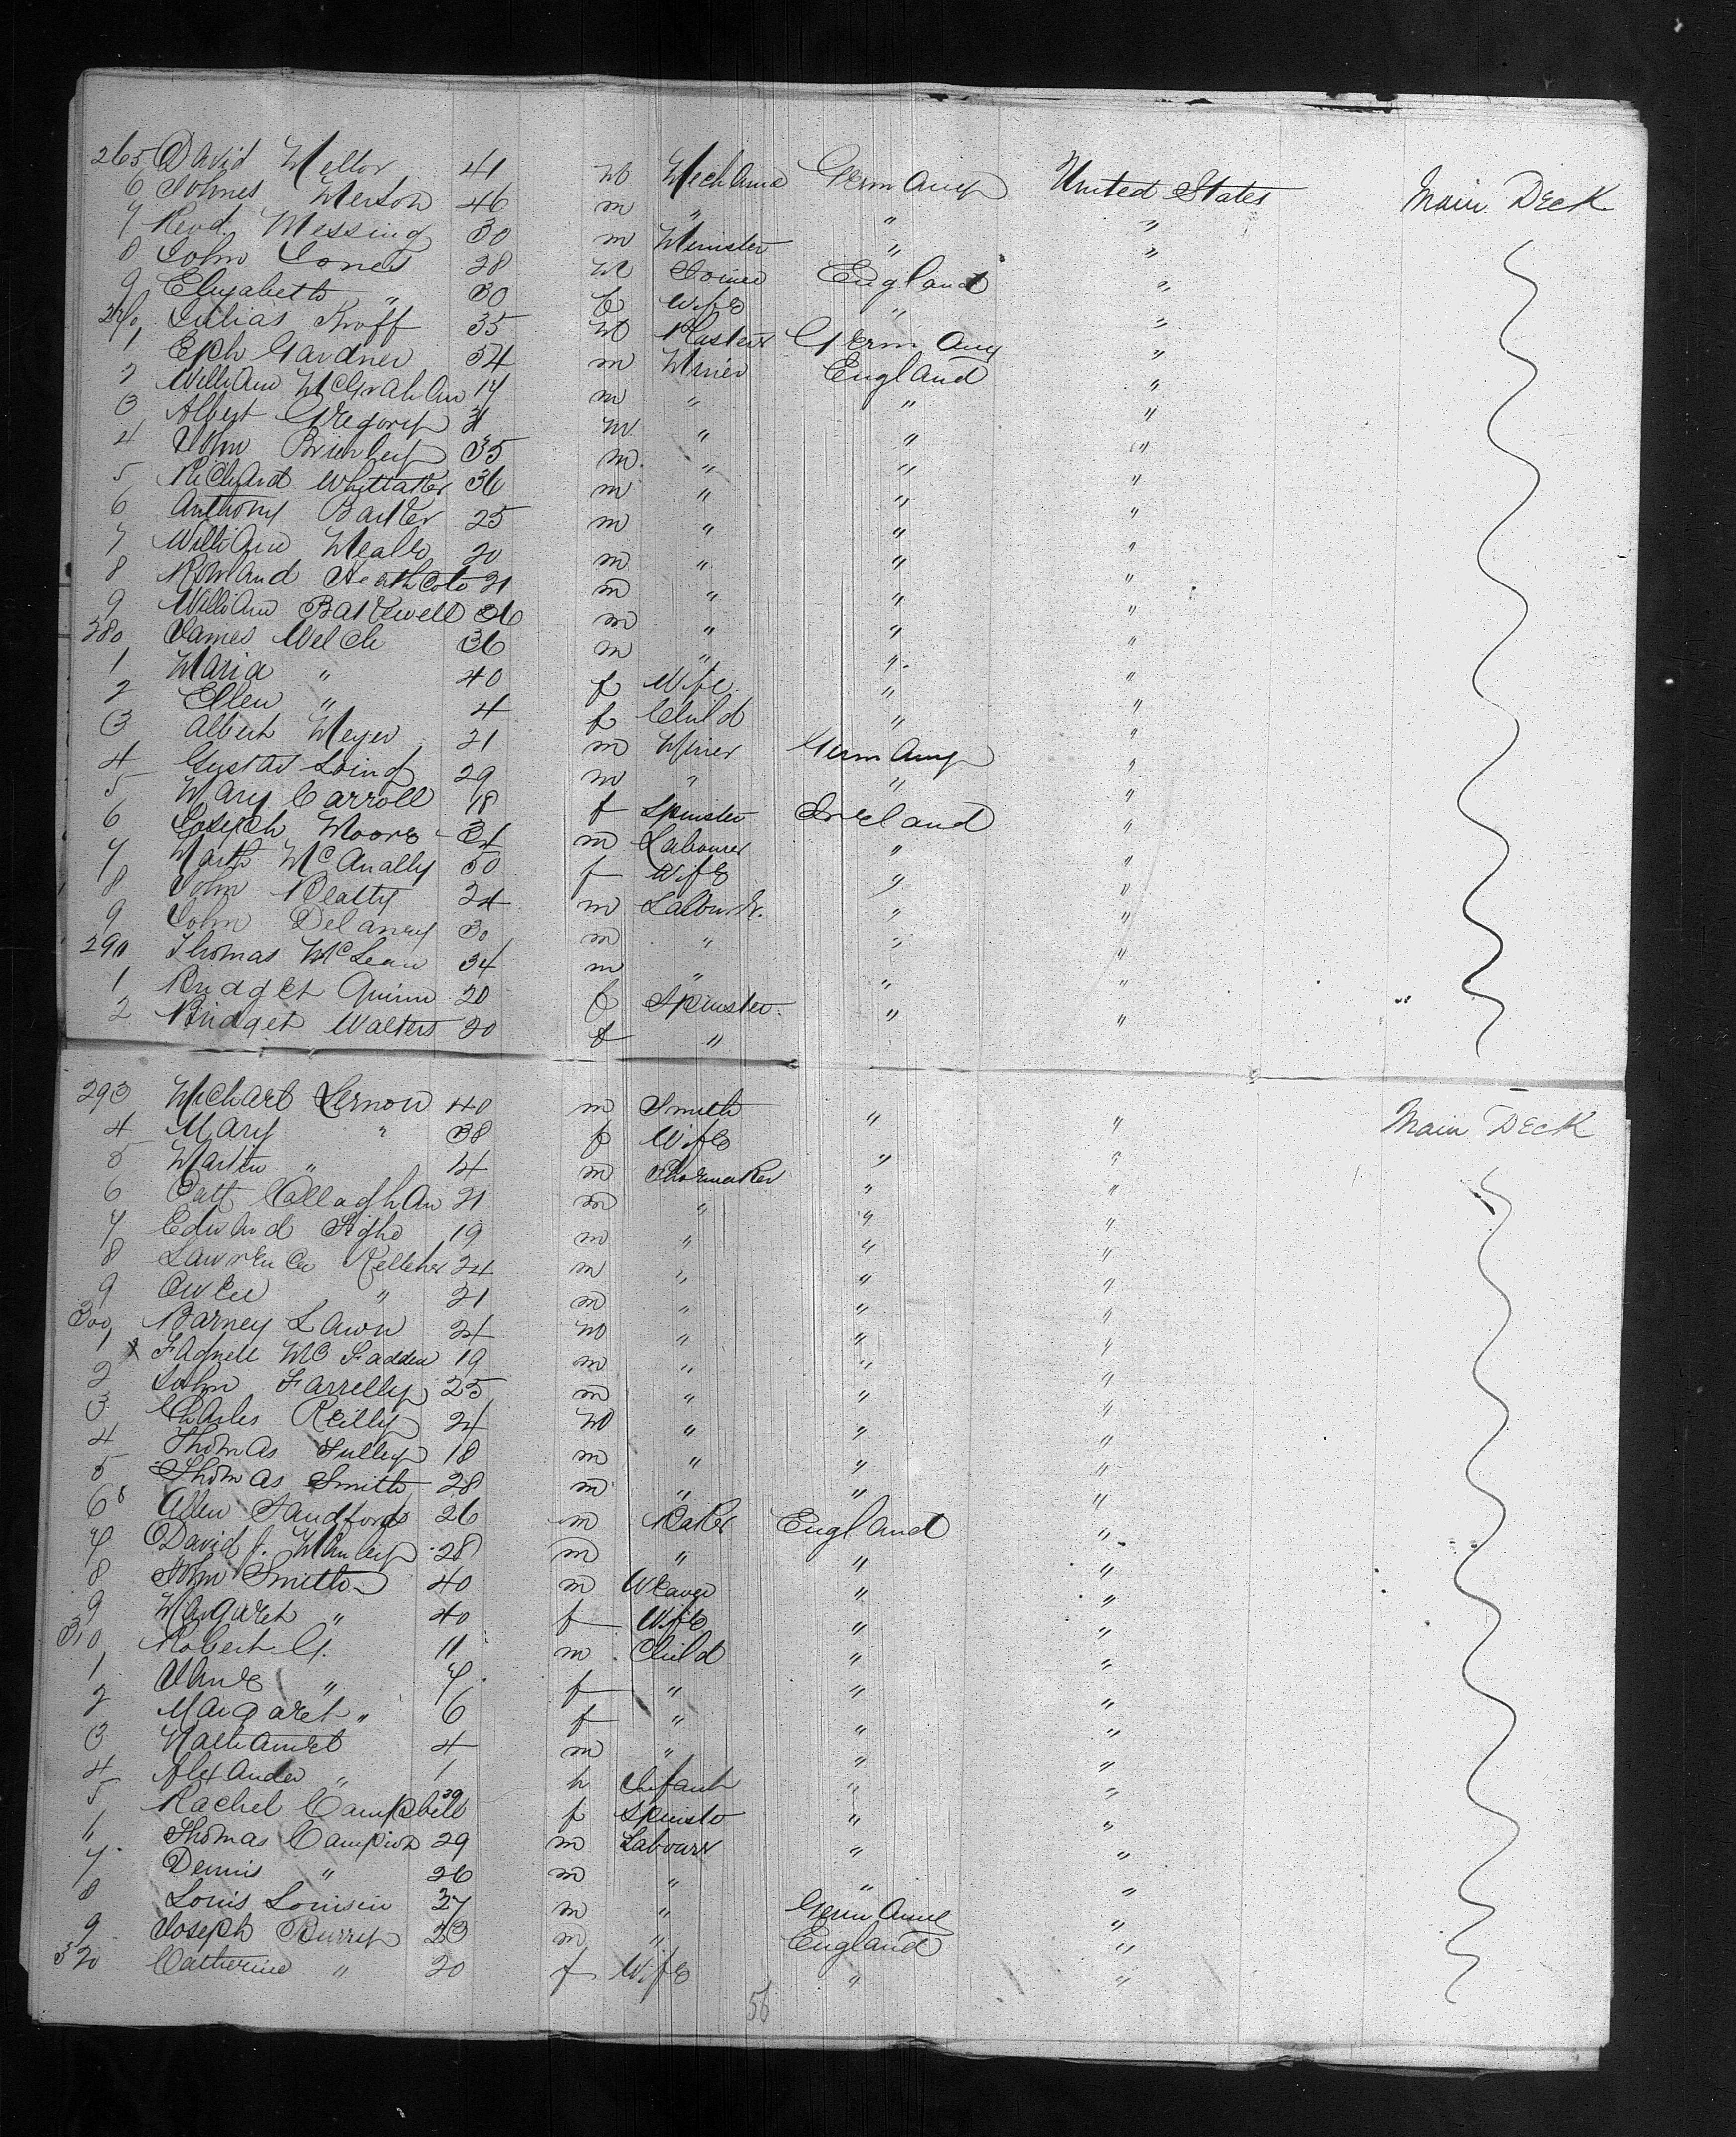 265 David Mellor 41 m Mechanic Germany United States Main Deck
6 Johnes Merton 46 m " " "
7 Revd. Messing 30 m Minister " "
8 John Jones 28 m Joiner England "
9 Elizabeth " 30 f Wife " "
270 Julias Kroff 35 m Germany "
1 Eph Gardner 54 m Miner England "
2 William McGrahan 14 m " " "
3 Albert Gregory 31 m " " "
4 John Brimley 35 m " " "
5 Richard Whittaker 36 m " " "
6 Anthony Barker 25 m " " "
7 William 20 m " " "
8 Rowland Heathcote 21 m " " "
9 William Bakewell 36 m " " "
280 James Welch 36 m " " "
1 Maria " 40 f Wife " "
2 Ellen " 4 f Child " "
3 Albert Meyer 21 m Miner Germany "
4 Gustav 29 m " " "
5 Mary Carroll 18 f Spinster Ireland "
6 Joseph Moore m Labourer " "
7 McAnally 50 f Wife " "
8 John Beatty 24 m Labourer " "
9 John Delaney 30 m " " "
290 Thomas McLean 34 m " " "
1 Bridget Quinn 20 f Spinster " "
2 Bridget Walters 20 f " " "
293 Michael Lernon 40 m Smith " " Main Deck
4 Mary " 38 f Wife " "
5 Martin " 14 m Shoemaker " "
6 Patt Callaghan 21 m " " "
7 Edward Tighe 19 m " " "
8 Lawrence Kelleher 24 m " " "
9 Owen " 21 m " " "
300 Barney Lawn 24 m " " "
1 x McFadden 19 m " " "
2 John Farrelly 25 m " " "
3 Charles Reilly 24 m " " "
4 Thomas Tulley 18 m " " "
5 Thomas Smith 28 m " " "
6 Allen Sandford 26 m Baker England "
7 David J. Manley 28 m " " "
8 John Smith 40 m Weaver " "
9 Margaret " 40 f Wife " "
310 Robert G. 11 m Child " "
1 Jane " 7 f " " "
2 Margaret " 6 f " " "
3 Nathaniel 4 m " " "
4 Alexander " 1 Infant " "
5 Rachel Campbell 39 f Spinster " "
" Thomas Campion 29 m Labourer " "
7 Dennis " 26 m " " "
8 Louis Louisin 37 m " Germany "
9 Joseph Burrep 23 m " England "
320 Catherine " 20 f Wife " "
56